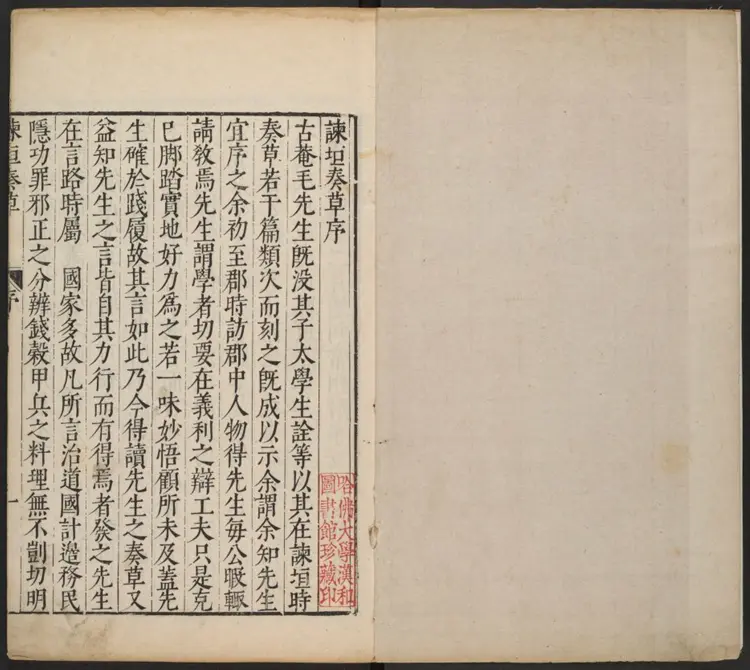 諫垣奏草序
古菴毛先生旣没其子太學生詮等以其在諫垣時
奏草若干篇類次而刻之旣成以示余謂余知先生
宜序之余初至郡時訪郡中人物得先生每公暇輒
請教焉先生謂學者切要在義利之辯工夫只是克
己脚踏實地好力爲之若一味妙悟顧所未及蓋先
生確於踐履故其言如此乃今得讀先生之奏草又
益知先生之言皆自其力行而有得焉者發之先生
在言路時屬　國家多故凡所言治道國計邊務民
隱功罪邪正之分辨錢穀甲兵之料理無不剴切明
諫垣奏草　序　一
哈佛大學漢和
圖書館珍藏印